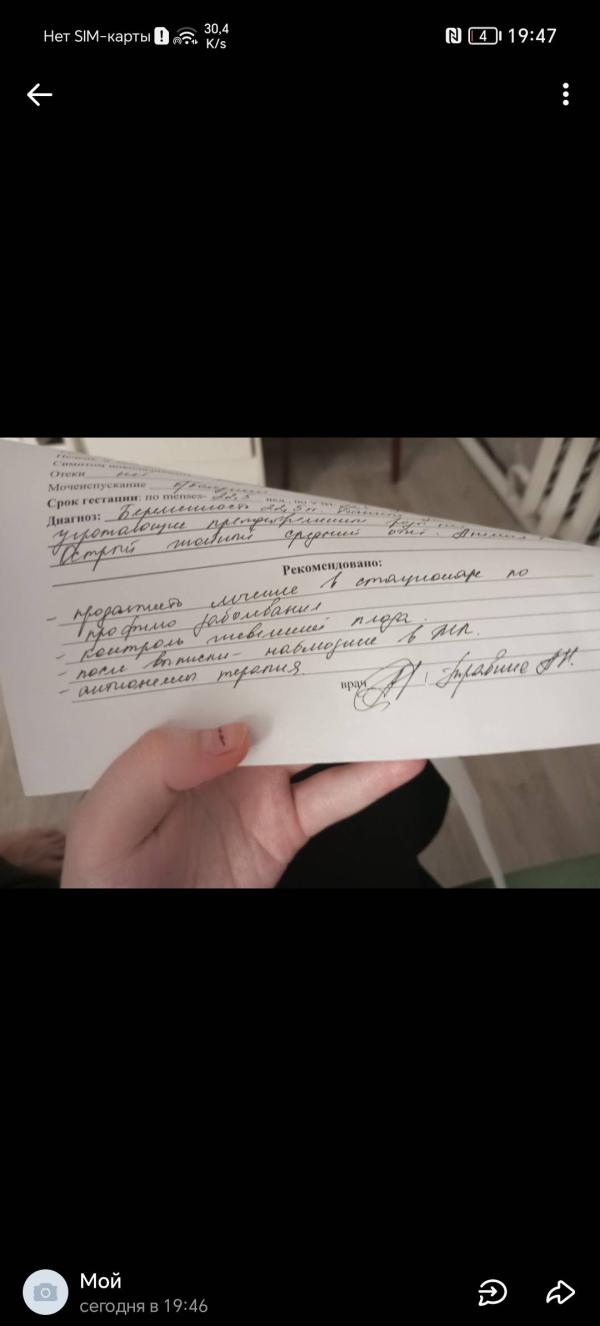 Нет SIM-карты
30,4
K/s
4
19:47
Отеки нет
Мочеиспускание
Срок гестации: по menses- 22,5 нед., по
Диагноз: Беременность 22,5 н.
угрожающие преждевременные
Острый гнойный средний отит. Анемия
Рекомендовано:
- продолжить лечение в стационаре по
профилю заболевания
- контроль шевелений плода.
- после выписки - наблюдение в ЖК.
- антианемич терапия.
врач
Мой
сегодня в 19:46